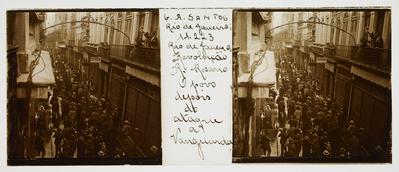 G. A. SANTOS
Rio de Janeiro.
11.223
Rio de Janeiro
Revolução
R. Rosario
O povo
depois
do
ataque
a "A
Vanguarda